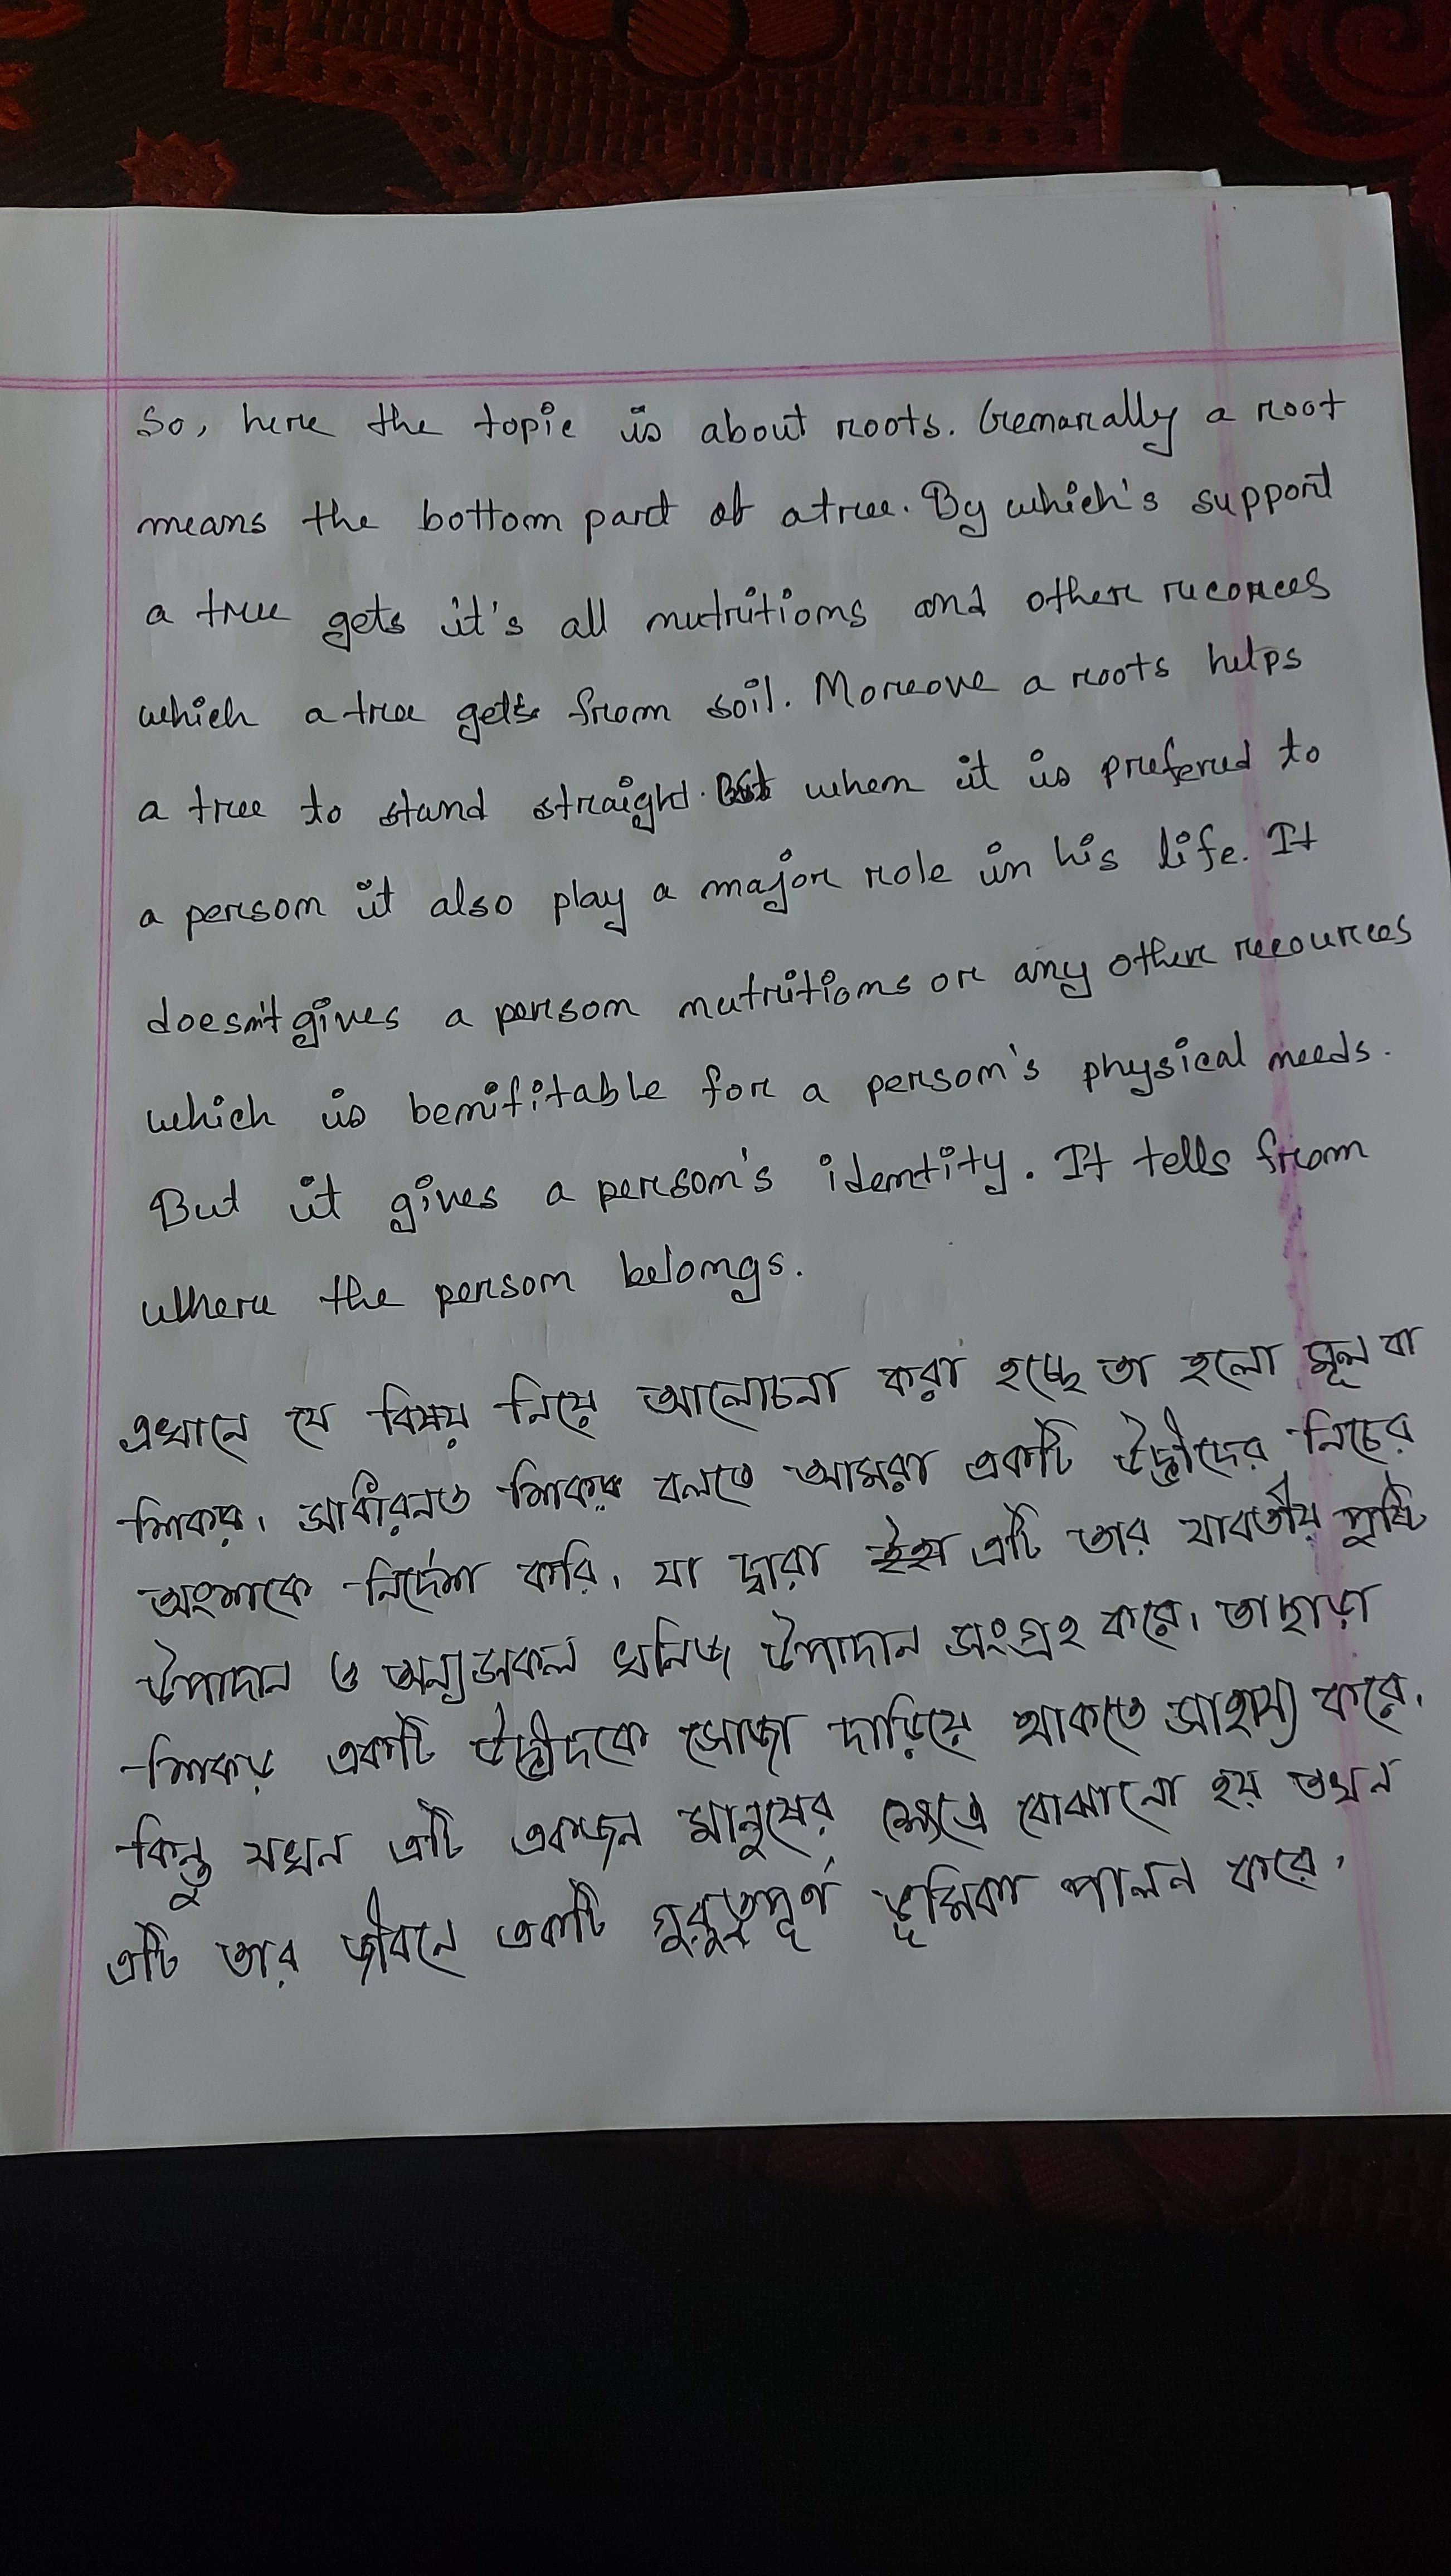 So, here the topic is about roots. Genarally a root
means the bottom part of a tree. By which's support
a tree gets it's all nutritions and other recorces
which a tree gets from soil. Moreove a roots helps
a tree to stand straight. But when it is prefered to
a person it also play a major role in his life. It
doesn't gives a person nutritions or any other recources
which is benifitable for a person's physical needs.
But it gives a person's identity. It tells from
where the person belongs.
এখানে যে বিষয় নিয়ে আলোচনা করা হচ্ছে তা হলো মূল বা
শিকর। সাধারনত শিকর বলতে আমরা একটি উদ্ভীদের নিচের
অংশকে নির্দেশ করি। যা দ্বারা এটি তার যাবতীয় পুষ্টি
উপাদান ও অন্যসকল খনিজ উপাদান সংগ্রহ করে। তাছাড়া
শিকড় একটি উদ্ভীদকে সোজা দাড়িয়ে থাকতে সাহায্য করে।
কিন্তু যখন এটি একজন মানুষের ক্ষেত্রে বোঝানো হয় তখন
এটি তার জীবনে একটি গুরুত্বপূর্ণ ভূমিকা পালন করে।